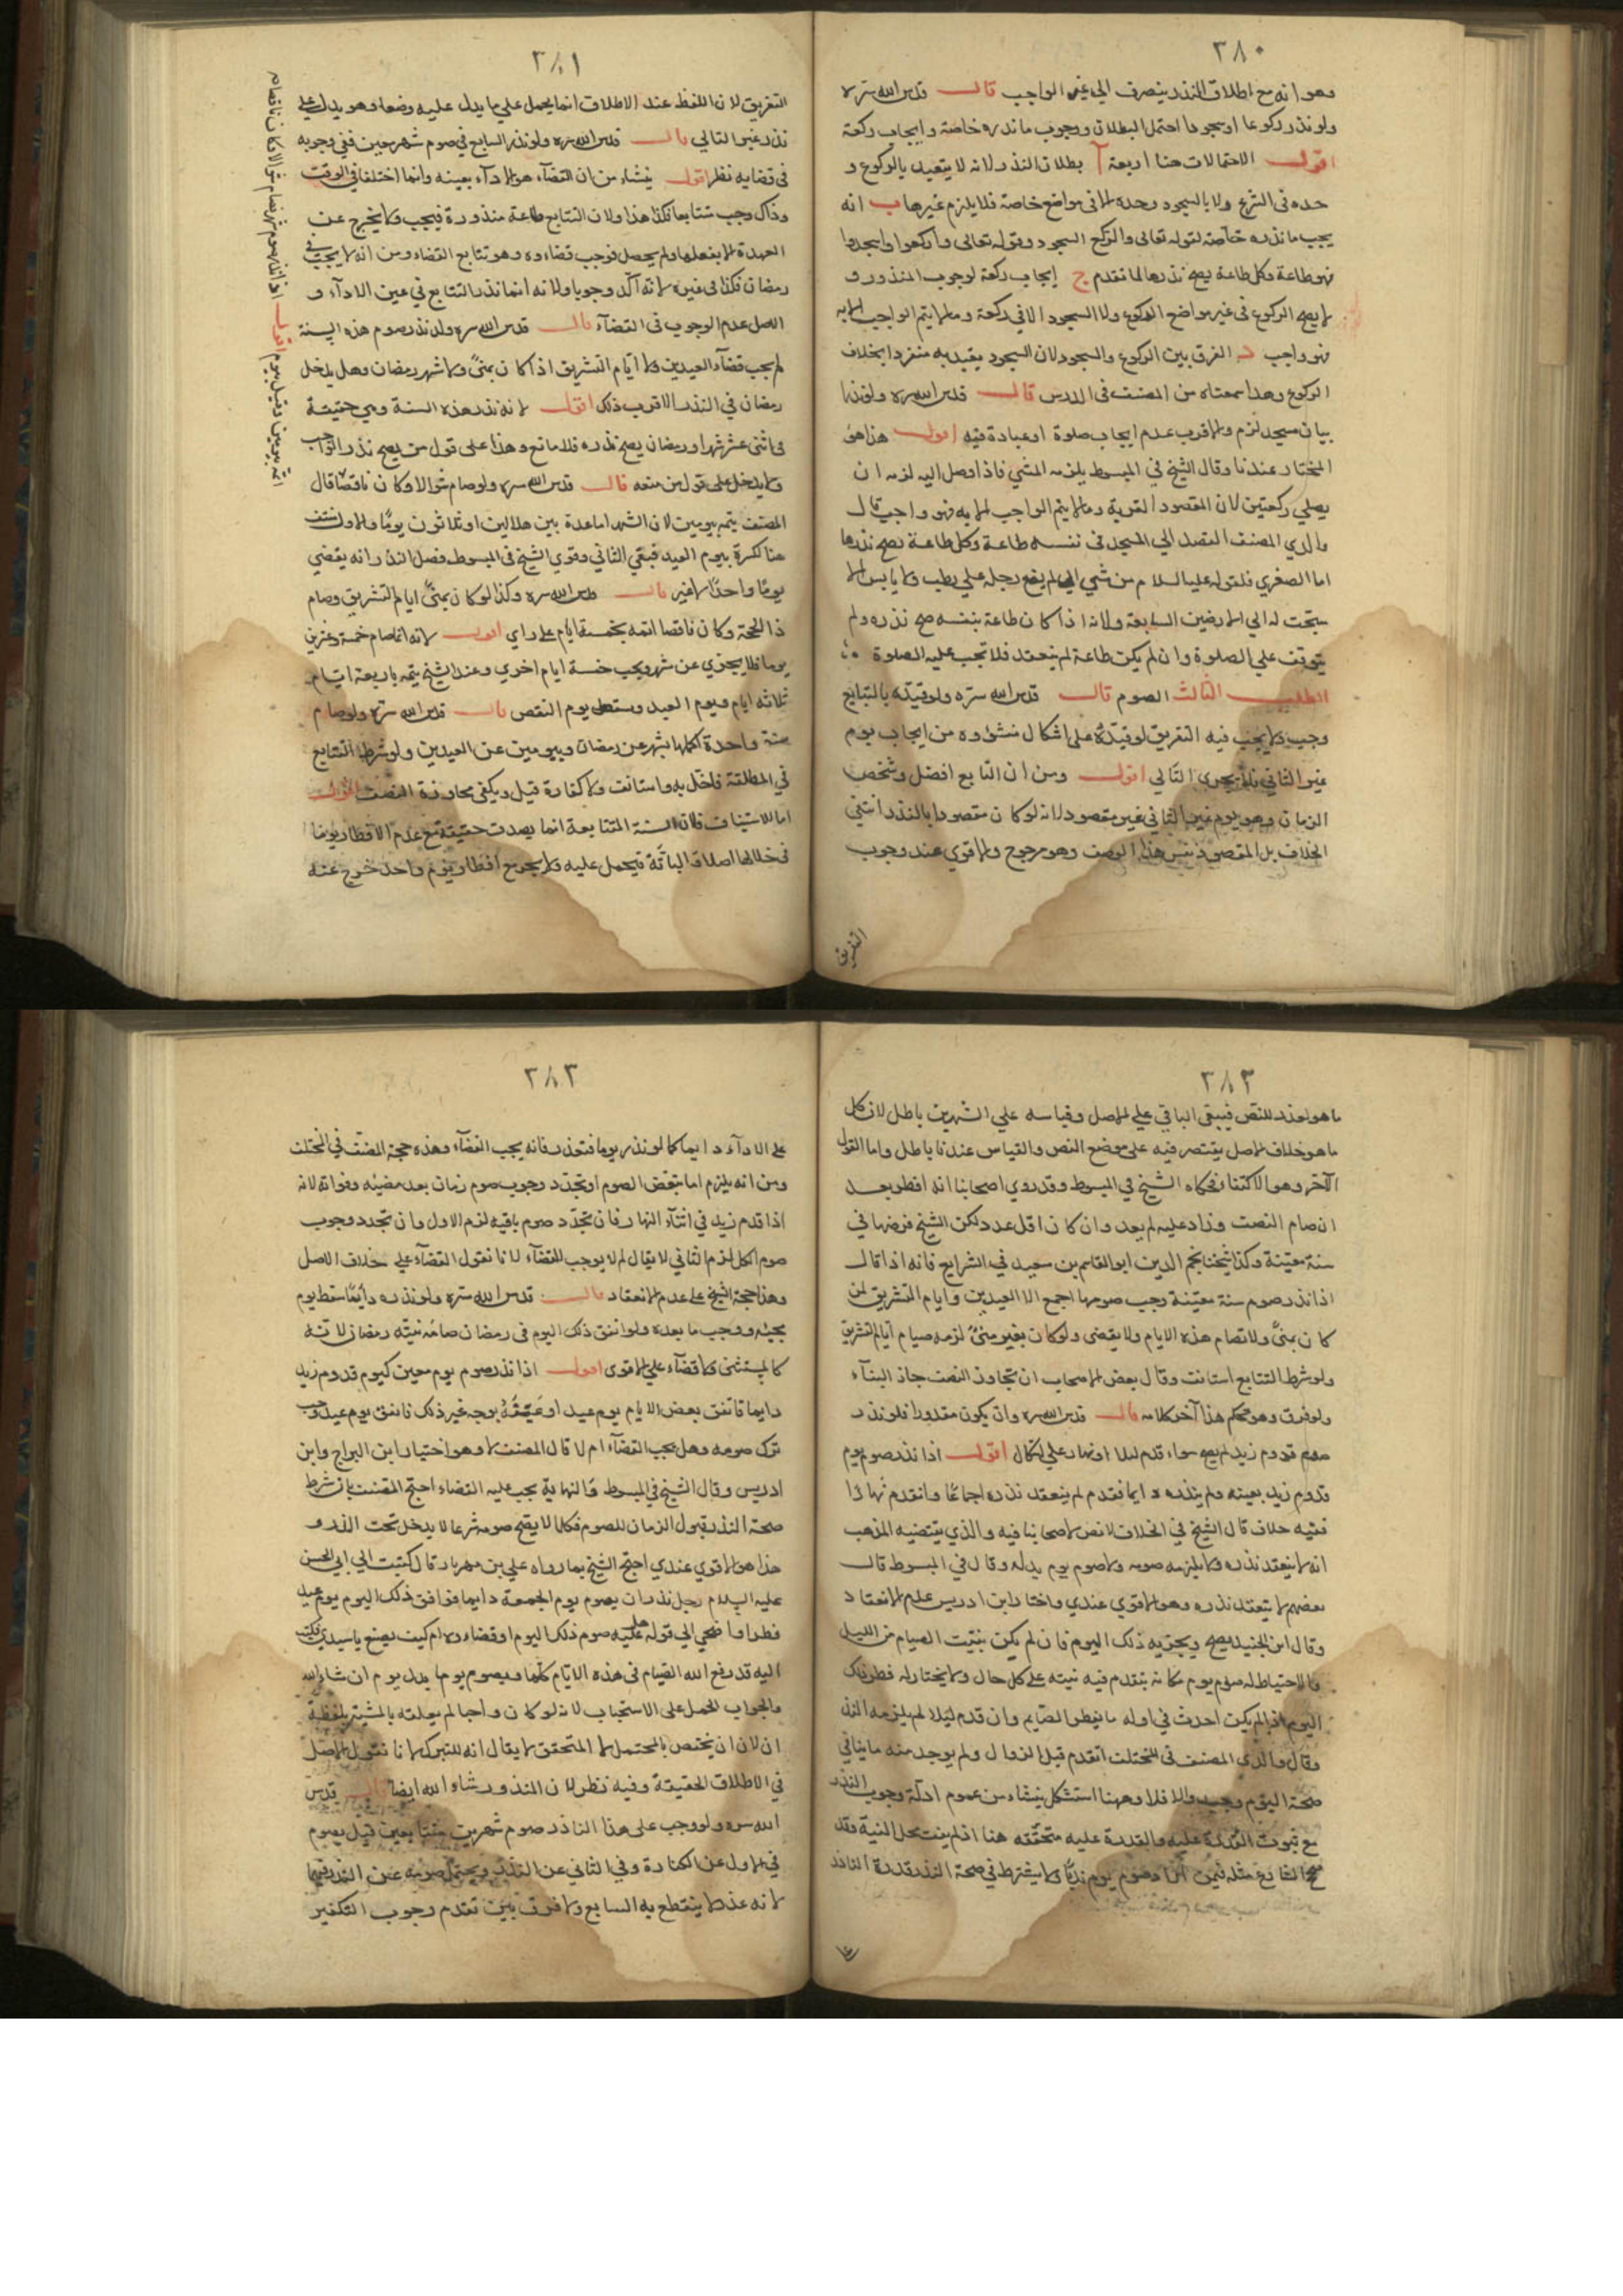 ٣٨٠
وهو انه مع اطلاق النذر ينصرف الى غير الواجب قال قدس الله سره
ولو نذر ركوعا او سجودا احتمل البطلان ووجوب ما نذره خاصة وايجاب ركعة
اقول الاحتمالات هنا اربعة آ بطلان النذر لانه لا يتعبد بالركوع و
حده فى الشرع ولا بالسجود وحده الا فى مواضع خاصة فلا يلزم غيرها ب انه
يجب ما نذره خاصة لقوله تعالى والركع السجود وقوله تعالى واركعوا واسجدوا
فهو طاعة وكل طاعة يصح نذرها لما تقدم ج ايجاب ركعة لوجوب المنذور و
لا يصح الركوع فى غير مواضع الركوع ولا السجود الا فى ركعة وما لا يتم الواجب الا به
فهو واجب د الفرق بين الركوع والسجود لان السجود يتعبد به منفردا بخلاف
الركوع وهذا سمعناه من المصنف فى الدرس قال قدس الله سره ولو نذر
بيان مسجد لزم والاقرب عدم ايجاب صلوة او عبادة فيه اقول هذا هو
المختار عندنا وقال الشيخ في المبسوط يلزمه المشي فاذا وصل اليه لزمه ان
يصلي ركعتين لان المقصود القربة وما لا يتم الواجب الا به فهو واجب قال
والدي المصنف القصد الي المسجد في نفسه طاعة وكل طاعة يصح نذرها
اما الصغري فلقوله عليه السلام من مشي الي لم يضع رجله علي رطب ولا يابس الا
سبحت له الي الارضين السابعة ولانه اذا كان طاعة بنفسه صح نذره ولم
يتوقف علي الصلوة وان لم يكن طاعة لم ينعقد فلا تجب عليه الصلوة
المطلب الثالث الصوم قال قدس الله سره ولو قيده بالتتابع
وجب ولا يجب فيه التفريق لو قيده على اشكال منشؤه من ايجاب يوم
غير الثاني فلا يجزي التالي اقول ومن ان التتابع افضل وشخص
الزمان وهو يوم غير الثاني غير مقصود لانه لو كان مقصودا بالنذر انتفي
الخلاف بل المقصود نفس هذا الوصف وهو مرجوح والاقوي عند وجوب
التفريق
٣٨١
التفريق لان اللفظ عند الاطلاق انما يحمل علي ما يدل عليه وضعا وهو يدل علي
نذر غير التالي قال قدس الله سره ولو نذر التتابع في صوم شهر معين ففي وجوبه
فى قضايه نظر اقول ينشاء من ان القضآء هو الادآء بعينه وانما اختلفا في الوقت
وذاك وجب متتابعا فكذا هذا ولان التتابع طاعة منذورة فيجب ولا يخرج عن
العهدة الا بفعلها ولم يحصل فوجب قضاوه وهو تتابع القضاء ومن انه لا يجب في
رمضان فكذا فى غيره لانه آكد وجوبا ولانه انما نذر التتابع في عين الادآء و
الاصل عدم الوجوب فى القضآء قال قدس الله سره ولو نذر صوم هذه السنة
لم يجب قضآء العيدين ولا ايام التشريق اذا كان بمنى ولا شهر رمضان وهل يدخل
رمضان في النذر الاقرب ذلك اقول لانه نذر هذه السنة وهي حقيقة
فى اثنى عشر شهرا ورمضان يصح نذره فلا مانع وهذا على قول من يصح نذر الواجب
ولا يدخل على قول من منعه قال قدس الله سره ولو صام شوالا وكان ناقصا قال
المصنف يتمه بيومين لان الشهر اما عدة بين هلالين او ثلاثون يوما والاول منتف
هنا لكسره بيوم العيد فبقي الثاني وقوي الشيخ فى المبسوط فصل النذر انه يقضي
يوما واحدا لا غير قال قدس الله سره وكذا لو كان بمنى ايام التشريق وصام
ذا الحجة وكان ناقصا اتمه بخمسة ايام على راي اقول لانه انما صام خمسة وعشرين
يوما فلا يجزي عن شهر ويجب خمسة ايام اخري وعند الشيخ يتمه باربعة ايام
ثلاثة ايام ويوم العيد وسقط يوم النقص قال قدس الله سره ولو صام
سنة واحدة اكملها بشهر عن رمضان وبيومين عن العيدين ولو شرط التتابع
في المطلقة فاخل به واستانف ولا كفارة قيل ويكفى مجاوزة النصف اقول
اما الاستيناف فلان السنة المتتابعة انما يصدق حقيقة مع عدم الافطار يوما
فى خلالها اصلا البتة فيحمل عليه ولا يجوز مع افطار يوم واحد خرج عنه
٣٨٢
ما هو لعذر للنص فيبقى الباقي علي الاصل وقياسه علي الشهرين باطل لان كل
ما هو خلاف الاصل يقتصر فيه على موضع النص والقياس عندنا باطل واما القول
الآخر وهو الاكتفا فحكاه الشيخ في المبسوط وقد روي اصحابنا انه افطر بعد
ان صام النصف وزاد عليه لم يعد وان كان اقل عدد لكن الشيخ فرضها في
سنة معينة وكذا شيخنا نجم الدين ابو القاسم بن سعيد في الشرايع فانه اذا قال
اذا نذر صوم سنة معينة وجب صومها اجمع الا العيدين وايام التشريق لمن
كان بمنى ولا تصام هذه الايام ولا يقضى ولو كان بغير منى لزمه صيام ايام التشريق
ولو شرط التتابع استانف وقال بعض الاصحاب ان تجاوز النصف جاز البنآء
ولو فرق وهو تحكم هذا آخر كلامه قال قدس الله سره وان يكون مقدورا فلو نذر
صوم قدوم زيد لم يصح سواء قدم ليلا او نهارا على اشكال اقول اذا نذر صوم يوم
قدوم زيد بعينه ولم ينذره دايما فقدم لم ينعقد نذره اجماعا وان قدم نهارا
ففيه خلاف قال الشيخ في الخلاف لا نص لاصحابنا فيه والذي يقتضيه المذهب
انه لا ينعقد نذره ولا يلزمه صومه ولا صوم يوم بدله وقال في المبسوط قال
بعضهم لا ينعقد نذره وهو الاقوي عندي واختار ابن ادريس عدم الانعقاد
وقال ابن الجنيد يصح ويجزيه ذلك اليوم فان لم يكن بيت الصيام من الليل
والاحتياط له صوم يوم مكانه يتقدم فيه نيته على كل حال ولا يختار له فطر ذلك
اليوم اذا لم يكن احدث في اوله ما يفطر الصايم وان قدم ليلا لم يلزمه النذر
وقال والدي المصنف في المختلف ان قدم قبل الزوال ولم يوجد منه ما ينافي
صحة اليوم وجب والا فلا وههنا استشكل ينشاء من عموم ادلة وجوب النذر
مع ثبوت القدرة عليه والقدرة عليه متحققة هنا اذ لم يفت محل النية وقد
صح الشارع مثله فيمن اراد صوم يوم ولا يشترط في صحة النذر قدرة الناذر
٣٨٣
على الادآء دايما كما لو نذر يوما فتعذر فانه يجب القضآء وهذه حجة المصنف في المختلف
ومن انه يلزم اما تبعض الصوم او تجدد وجوب صوم زمان بعد مضيه وفواته لانه
اذا قدم زيد في اثنآء النهار فان تجدد صوم باقيه لزم الاول وان تجدد وجوب
صوم الكل لزم الثاني لا يقال لم لا يوجب القضآء لانا نقول القضآء على خلاف الاصل
وهذا حجة الشيخ على عدم الانعقاد قال قدس الله سره ولو نذره دايما سقط يوم
مجيئه ووجب ما بعده ولو اتفق ذلك اليوم فى رمضان صامه بنية رمضان لانه
كالمستثنى ولا قضآء علي الاقوى اقول اذا نذر صوم يوم معين كيوم قدوم زيد
دايما فاتفق بعض الايام يوم عيد او عينه بوجه غير ذلك فاتفق يوم عيد وجب
ترك صومه وهل يجب القضآء ام لا قال المصنف لا وهو اختيار ابن البراج وابن
ادريس وقال الشيخ في المبسوط والنهاية يجب عليه القضاء احتج المصنف بان شرط
صحة النذر قبول الزمان للصوم فكلما لا يصح صومه شرعا لا يدخل تحت النذر و
هذا هو الاقوي عندي احتج الشيخ بما رواه علي بن مهزيار قال كتبت الي ابي الحسن
عليه السلام رجل نذر ان يصوم يوم الجمعة دايما فوافق ذلك اليوم يوم عيد
فطر او اضحي الى قوله هل عليه صوم ذلك اليوم او قضاؤه ام كيف يصنع يا سيدي فكتب
اليه قد رفع الله الصيام فى هذه الايام كلها ويصوم يوما بدل يوم ان شاء الله
والجواب الحمل على الاستحباب لانه لو كان واجبا لم يعلقه بالمشية بلفظة
ان لان ان يختص بالمحتمل لا المتحقق لا يقال انه للتبرك لانا نقول الاصل
في الاطلاق الحقيقة وفيه نظر لان المنذور شاء الله ايضا قال قدس
الله سره ولو وجب على هذا الناذر صوم شهرين متتابعين قيل يصوم
فى الاول عن الكفارة وفي الثاني عن النذر ويحتمل صومه عن النذر فيهما
لانه عذر لا ينقطع به التتابع ولا فرق بين تقدم وجوب التكفير